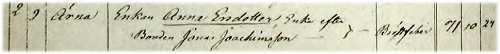 2 9 Årna Enkan Anna Ersdotter Enka efter
Bonden Jonas Joachimsson Bröstfeber 71 10 24